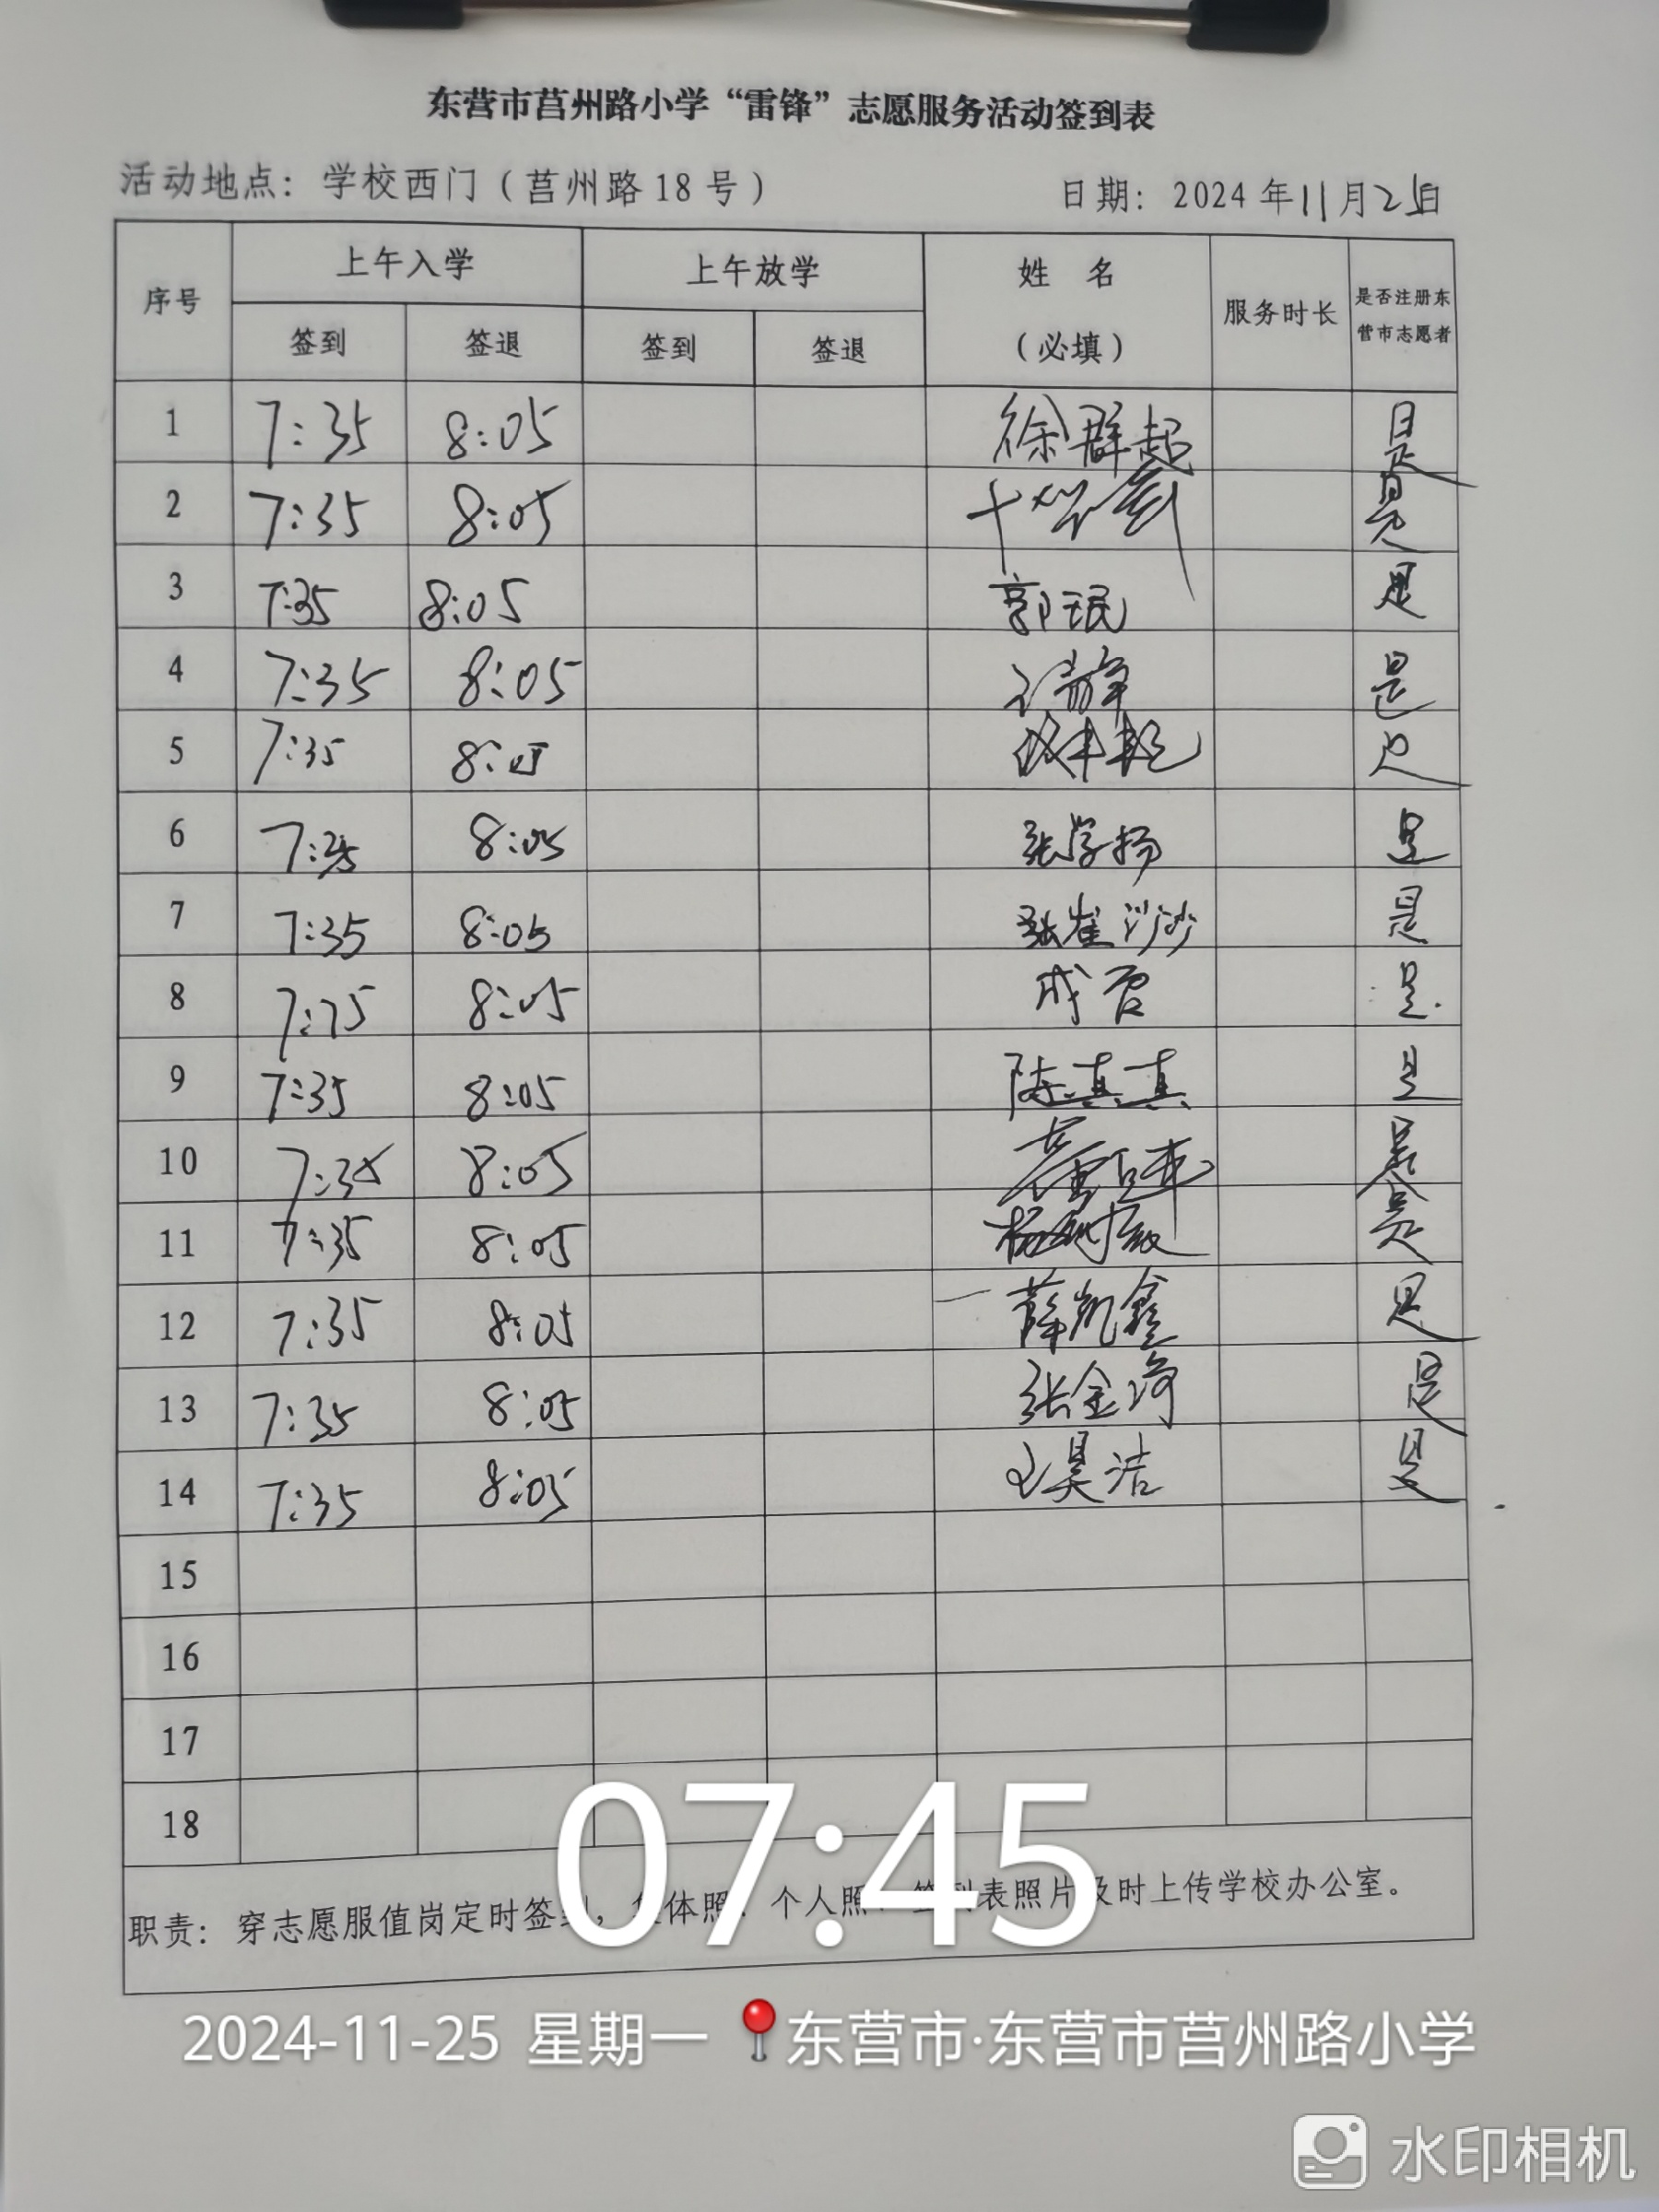 东营市莒州路小学“雷锋”志愿服务活动签到表
活动地点：学校西门（莒州路18号） 日期：2024年11月25日
序号 上午入学 上午放学 姓 名（必填） 服务时长 是否注册东营市志愿者
签到 签退 签到 签退
1 7:35 8:05 徐群起 是
2 7:35 8:05 是
3 7:35 8:05 郭珉 是
4 7:35 8:05 是
5 7:35 8:05 是
6 7:35 8:05 张学扬 是
7 7:35 8:05 张崔沙沙 是
8 7:35 8:05 是
9 7:35 8:05 陈真真 是
10 7:35 8:05 是
11 7:35 8:05 是
12 7:35 8:05 薛凯鑫 是
13 7:35 8:05 张金琦 是
14 7:35 8:05 王昊洁 是
15
16
17
18
职责：穿志愿服值岗定时签到，集体照、个人照、签到表照片及时上传学校办公室。
07:45
2024-11-25 星期一 东营市·东营市莒州路小学
水印相机